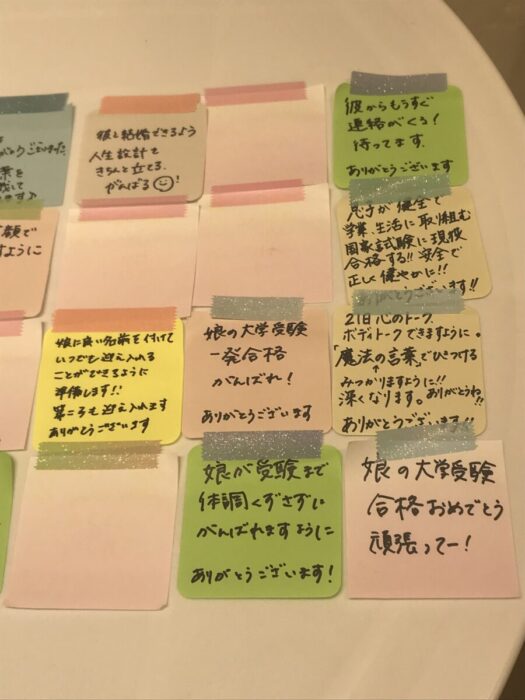 がとうございました。
業を
顔で
ますように
彼と結婚できるよう
人生設計を
きちんと立てる。
がんばる!
彼からもうすぐ
連絡がくる!
待ってます。
ありがとうございます
息子が健全で
学業、生活に取り組む
国家試験に現役
合格する!! 安全で
正しく健やかに!!
ありがとうございます!!
娘に良い名前を付けて
いつでも迎え入れる
ことができるように
準備します!!
第二子も迎え入れます
ありがとうございます
娘の大学受験
一発合格
がんばれ!
ありがとうございます
21日心のトーク、
ボディトークできますように。
「魔法の言葉」でひきつける
↑
みつかりますように!!
深くなります。ありがとうね!!
ありがとうございます!!
娘が受験まで
体調くずさずに
がんばれますように
ありがとうございます!
娘の大学受験
合格おめでとう
頑張ってー!